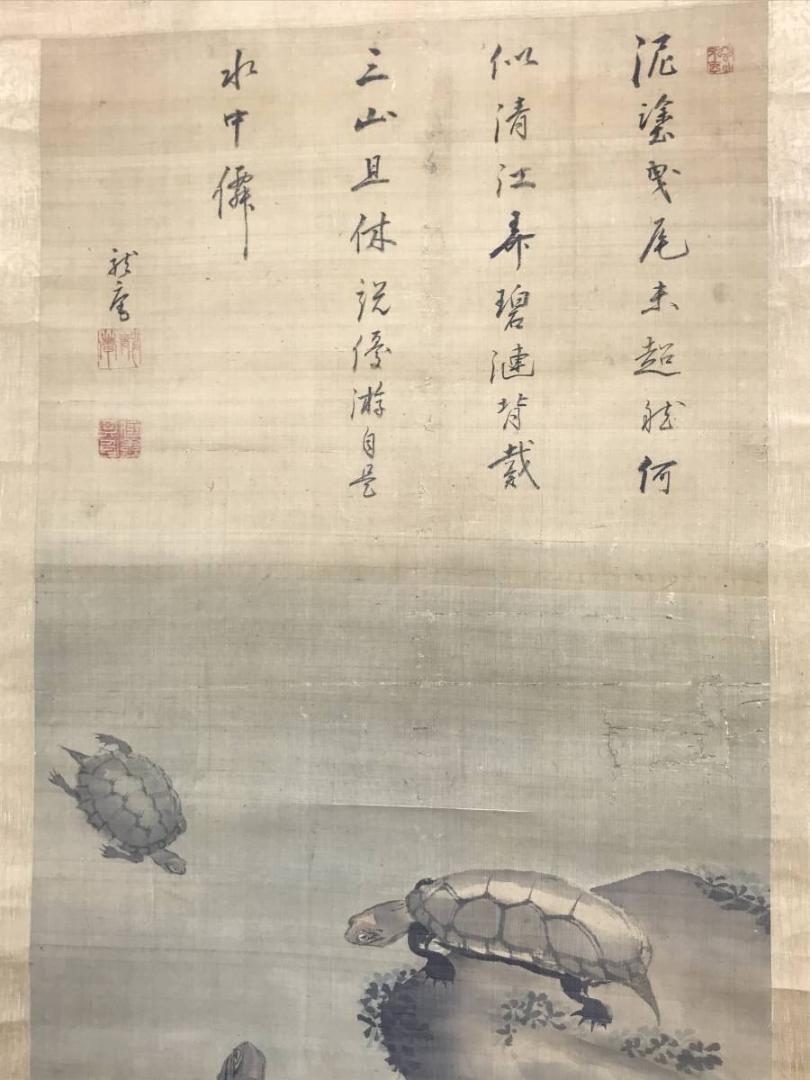 泥塗曳尾未超然何
似清江弄碧漣背戴
三山且休説優游自是
水中僊